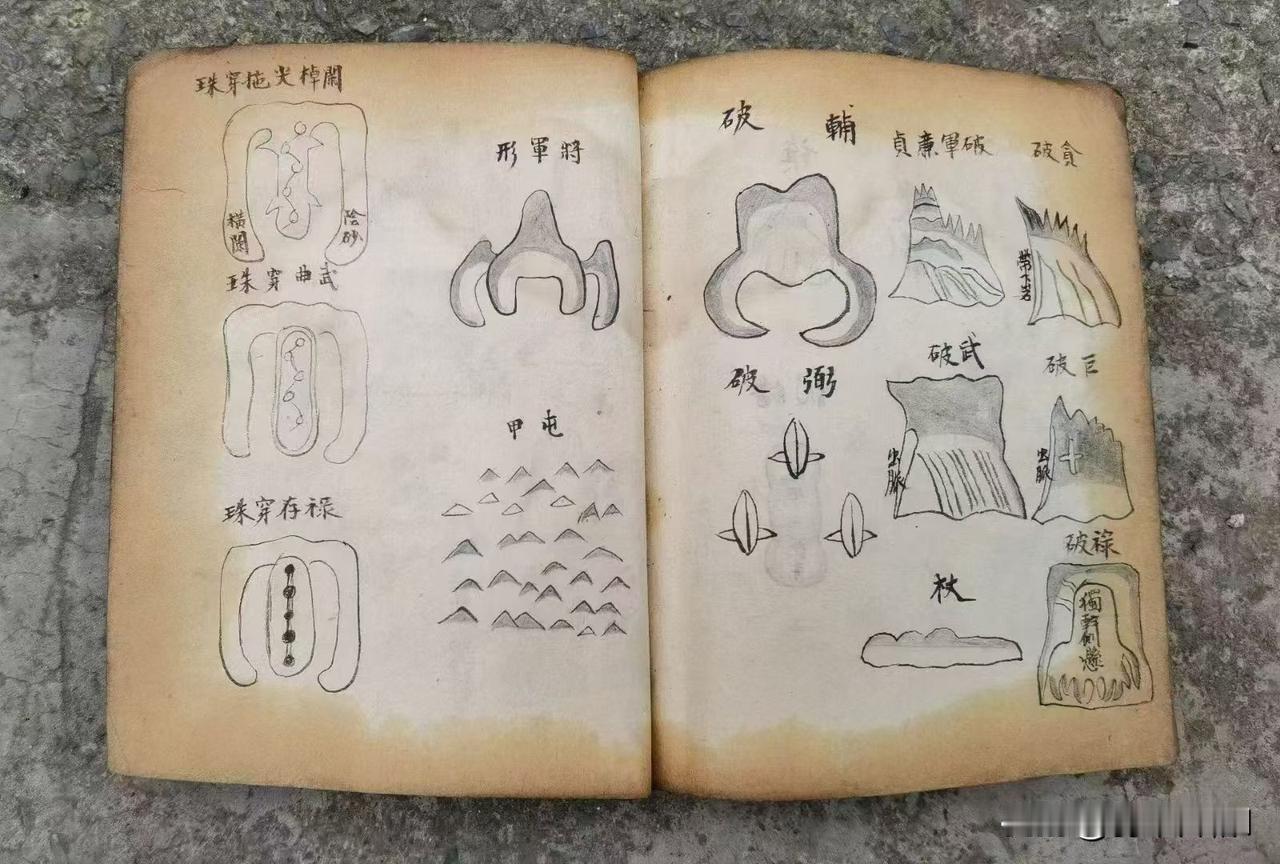 貪破
帶下岩
破軍廉貞
輔破
巨破
出脈
武破
出脈
弼破
祿破
獨
杖
將軍形
屯甲
闌棹尖拖穿珠
陰砂
橫闌
武曲穿珠
祿存穿珠